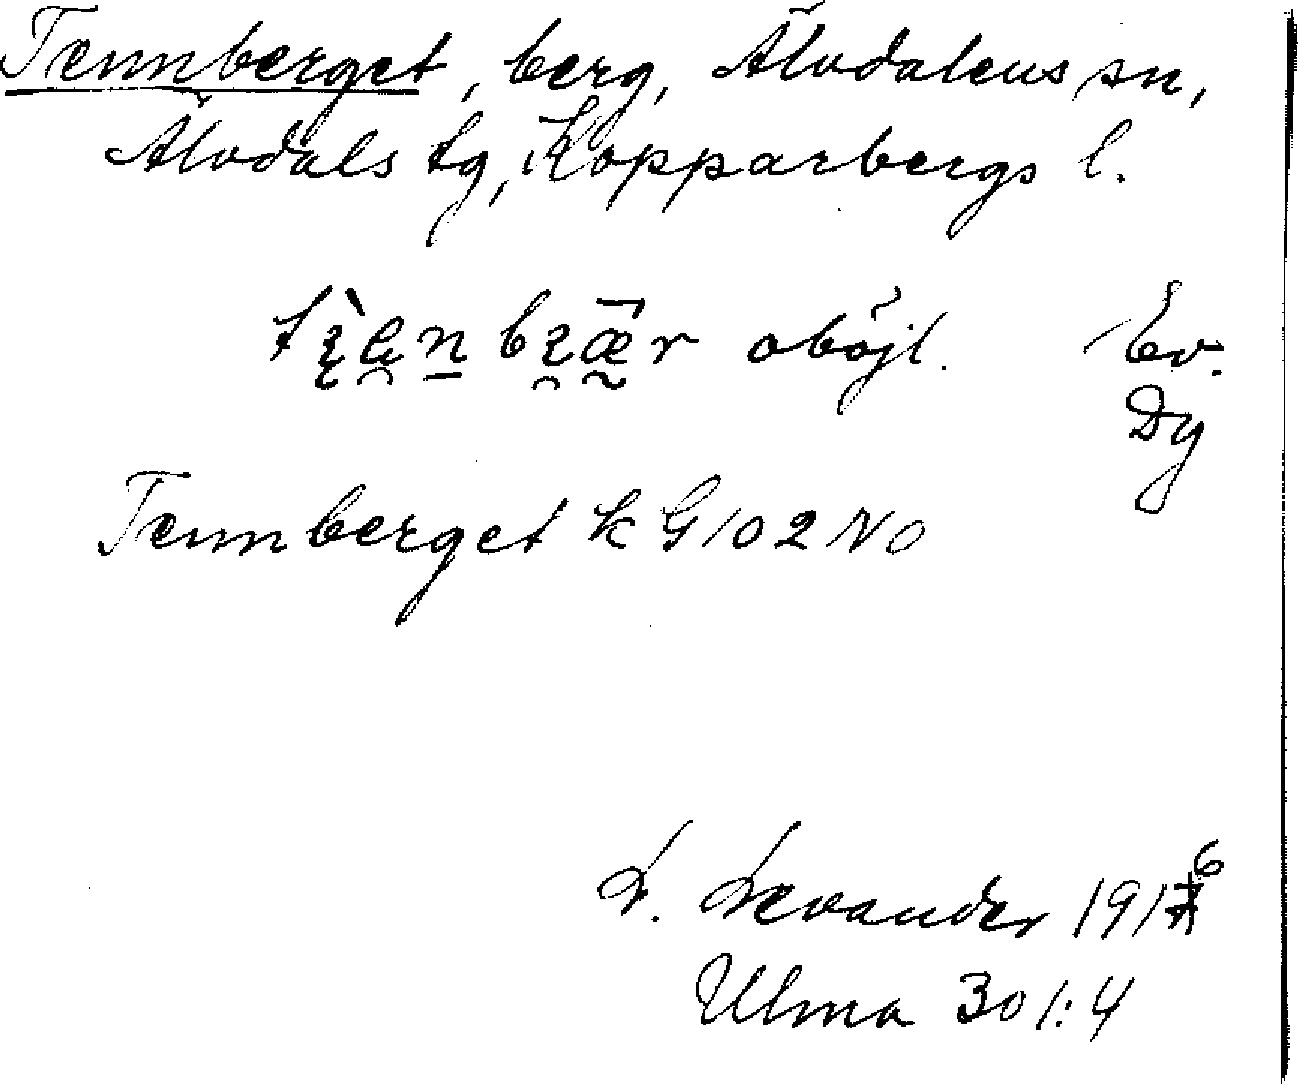 Tennberget, berg, Älvdalens sn,
Älvdals tg, Kopparbergs l.
oböjl. Ev.
Dy
Tennberget k G 102 NO
L. Levander 1916
Ulma 301:4